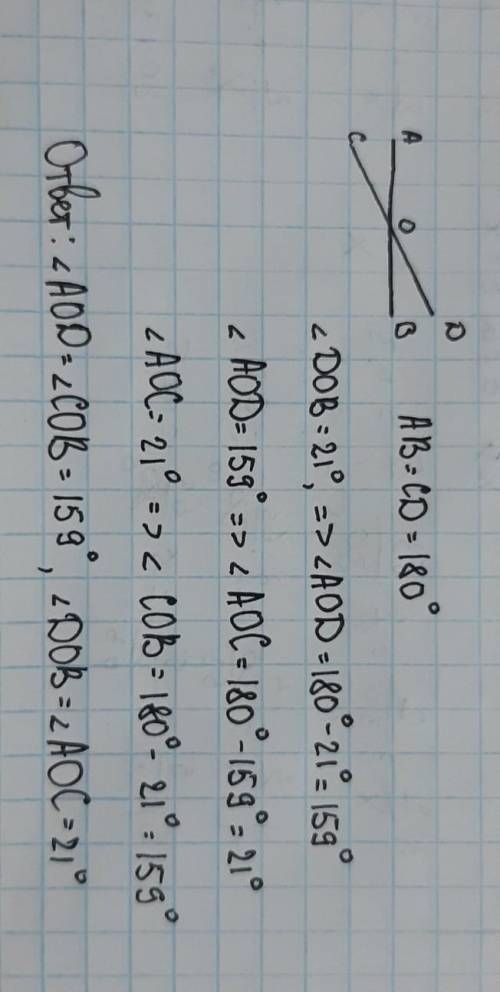 A O B C D
AB = CD = 180°
∠DOB = 21°, => ∠AOD = 180° - 21° = 159°
∠ AOD = 159° => ∠ AOC = 180° - 159° = 21°
∠AOC = 21° => ∠ COB = 180° - 21° = 159°
Ответ: ∠AOD = ∠COB = 159°, ∠DOB = ∠AOC = 21°